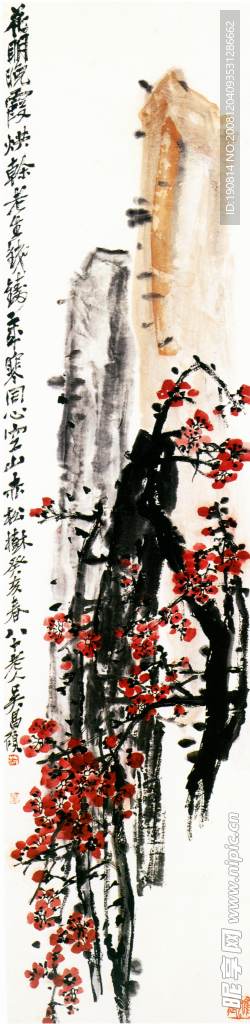 花明晚霞烘幹老生鐵鑄歲寒同心空山赤松樹癸亥春八十老人吳昌碩
ID:190814 NO:20081204093531286662
昵享网 www.nipic.cn